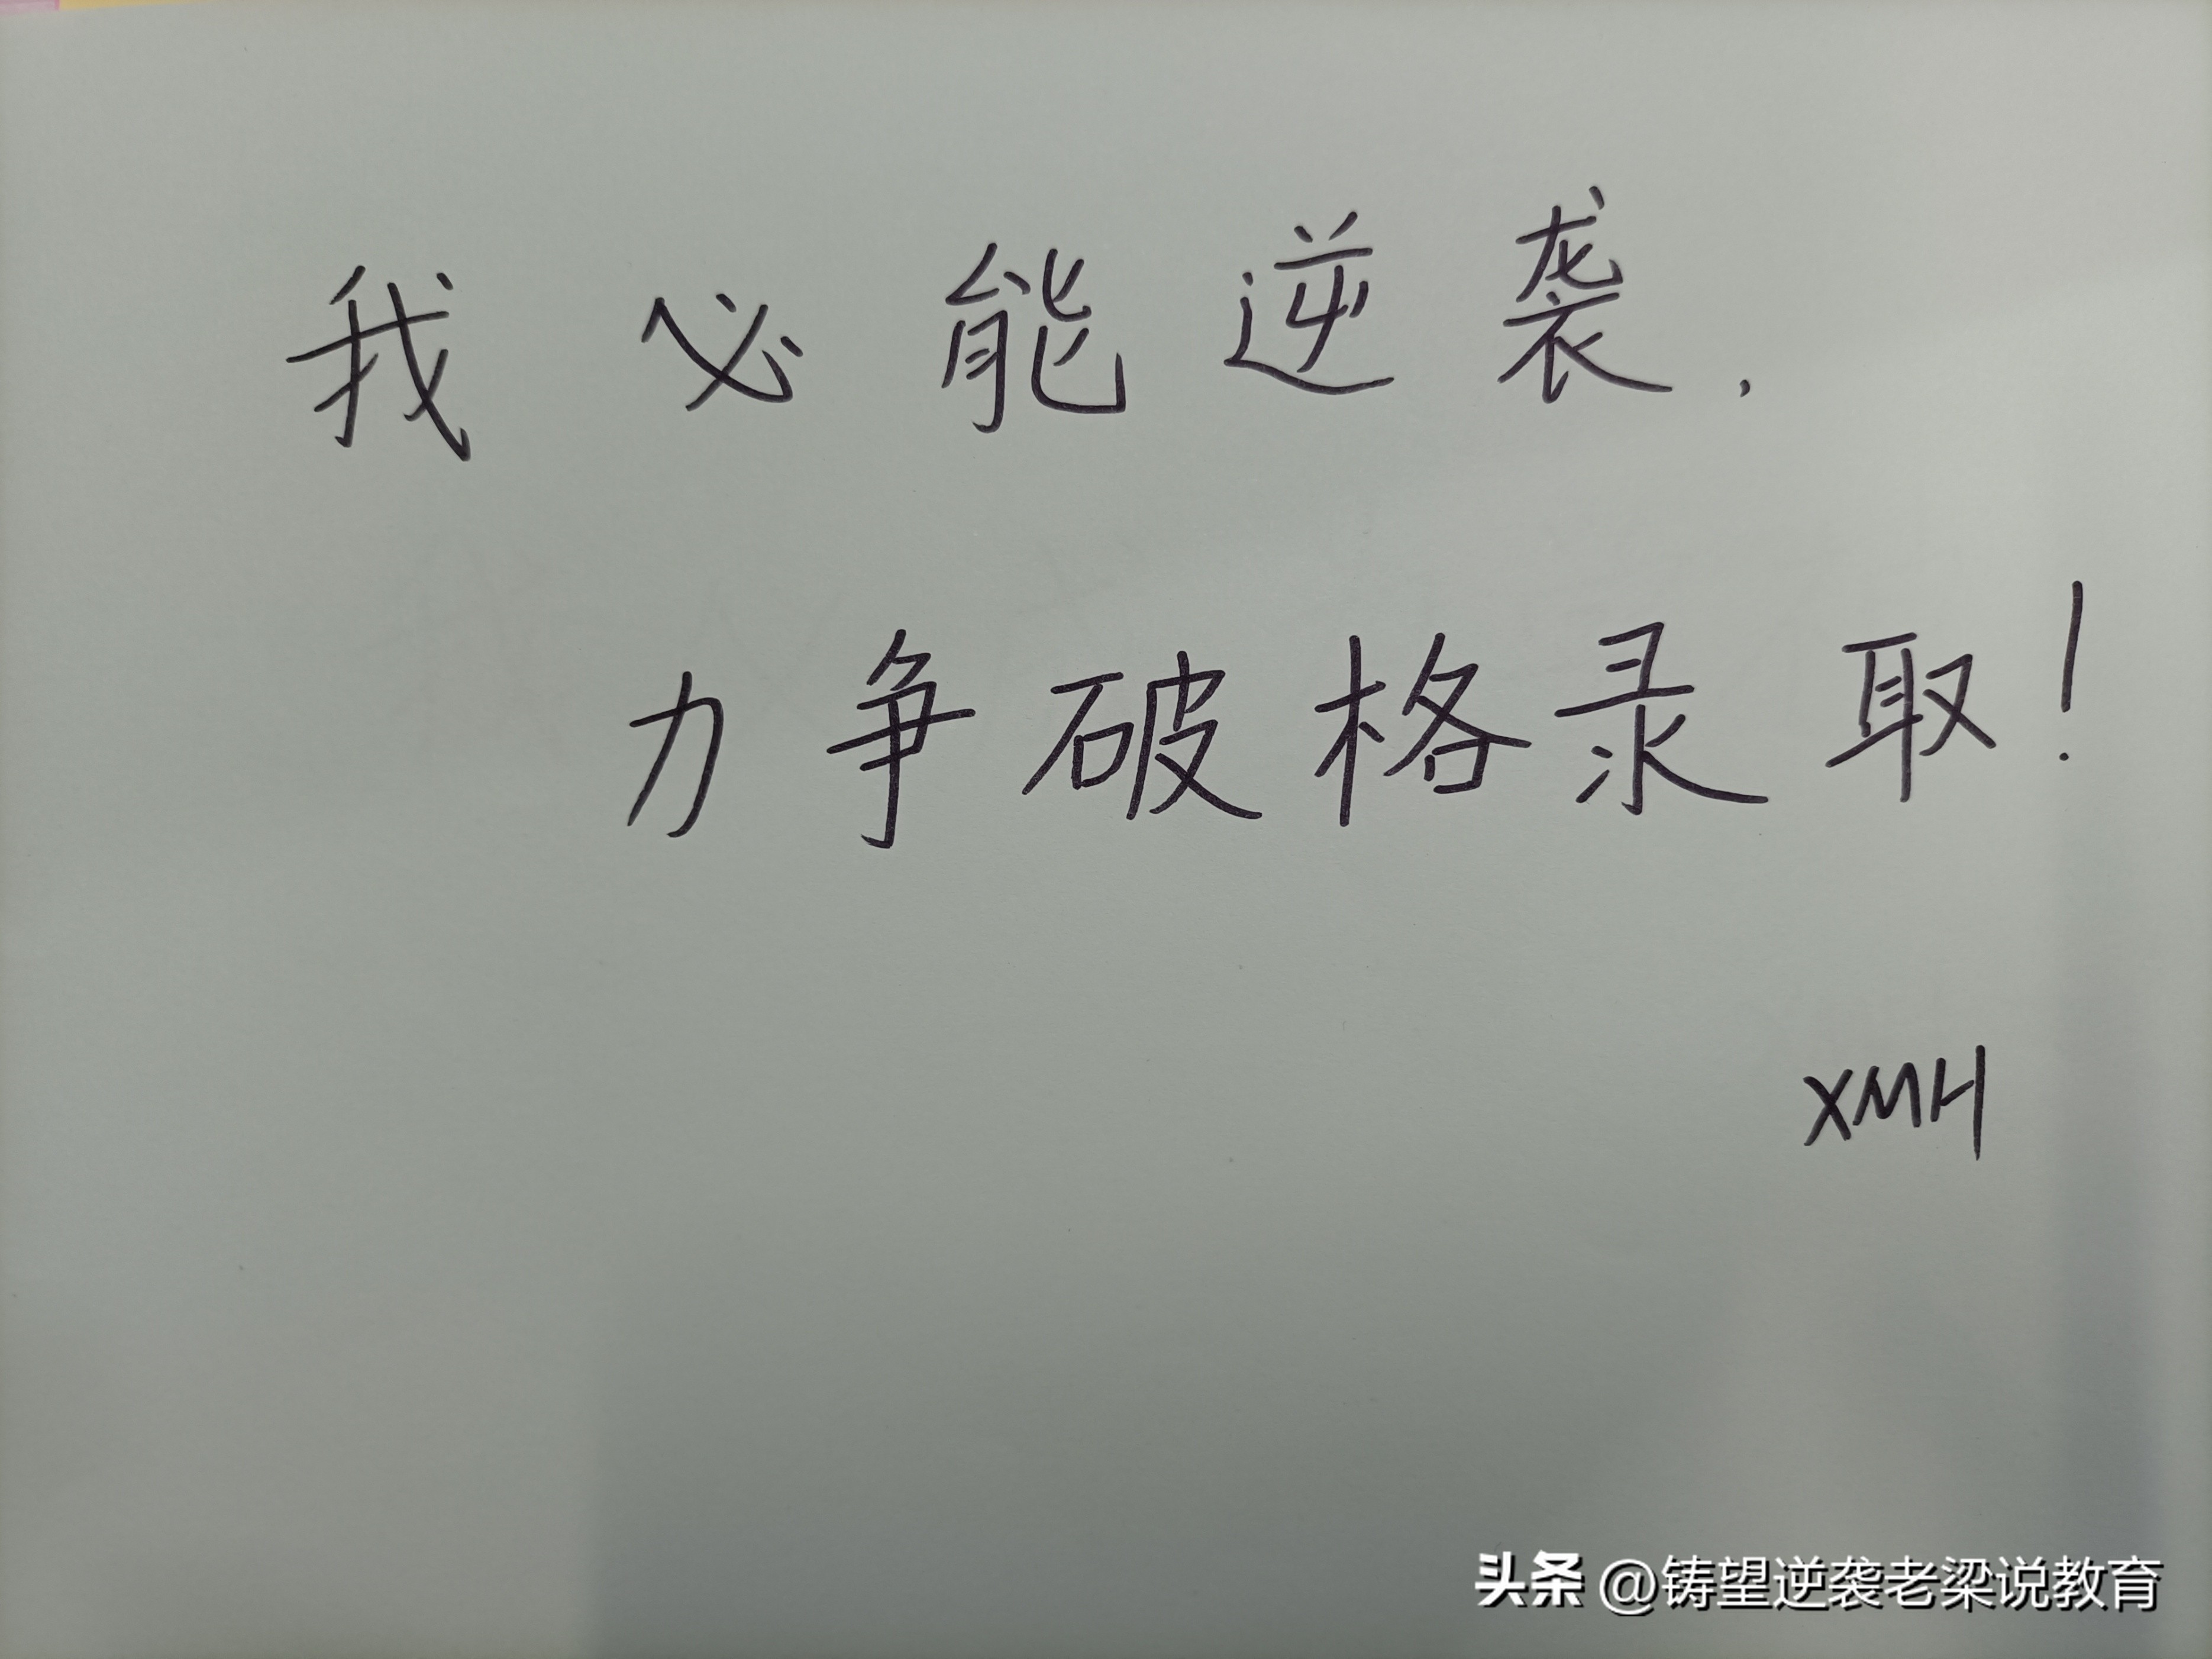 我必能逆袭,
力争破格录取!
XMH
头条 @铸望逆袭老梁说教育